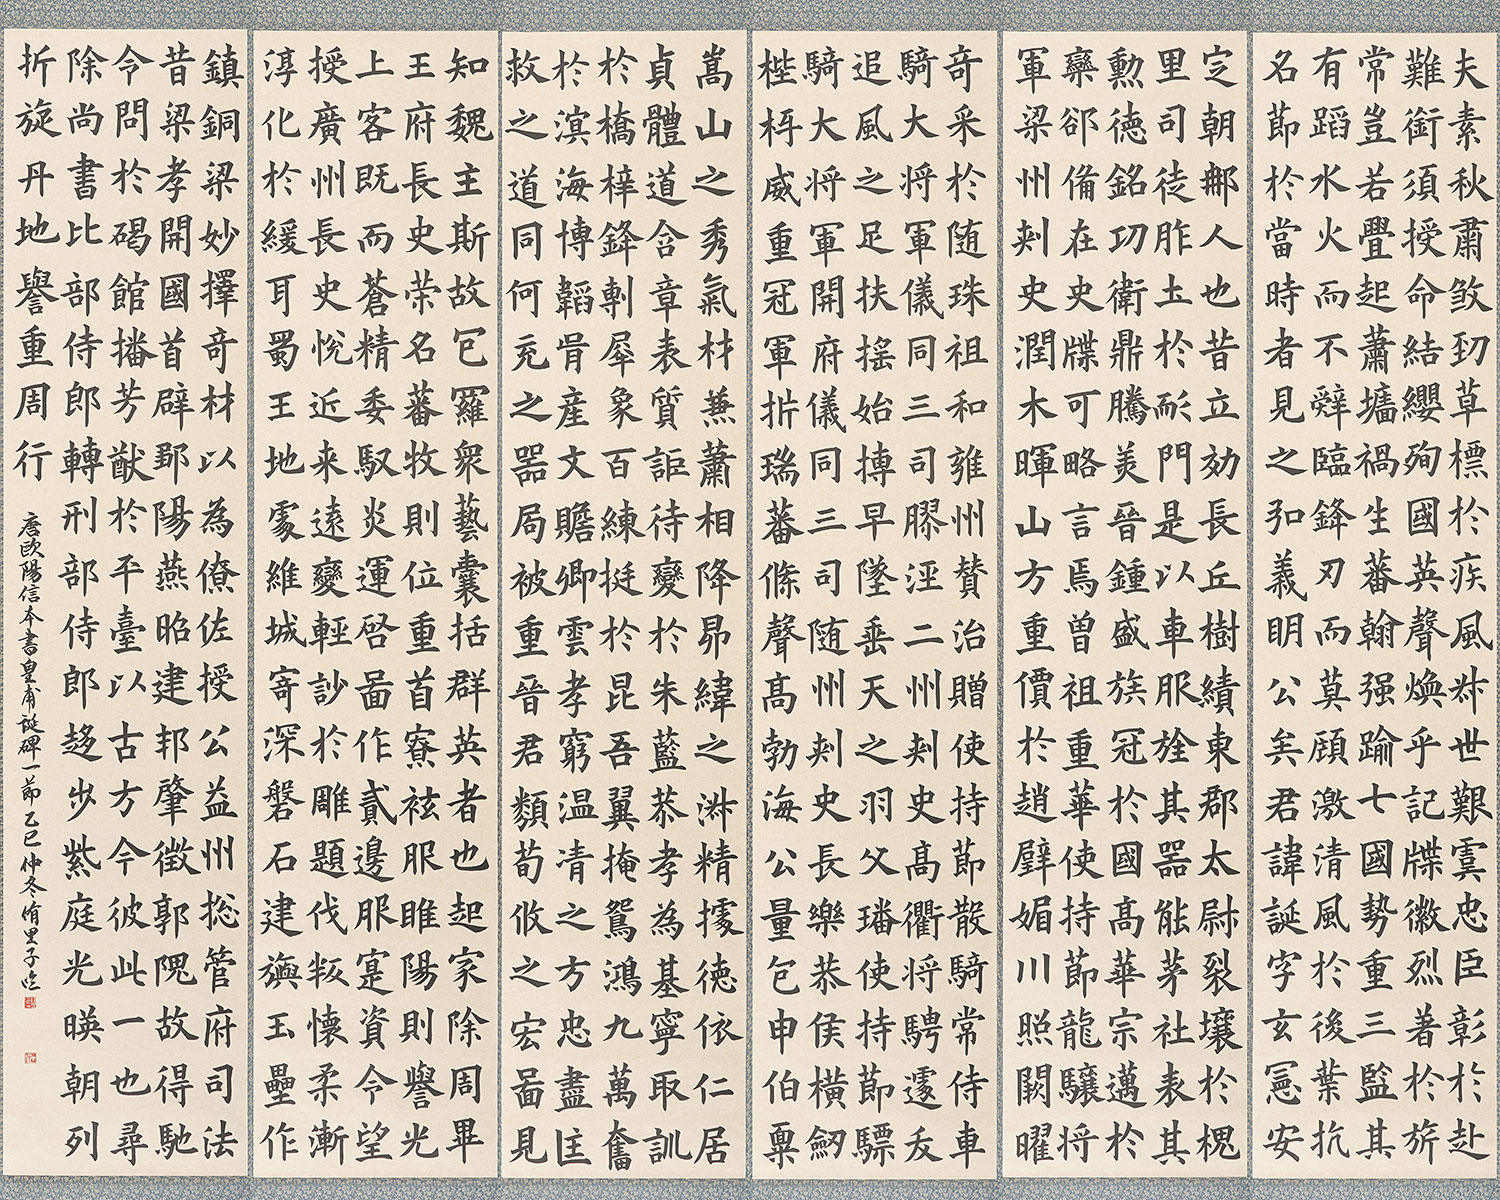 夫素秋肅煞勁草標於疾風叔世艱虞忠臣彰於赴
難銜須授命結纓殉國英聲煥乎記牒徽烈著於旂
常豈若舋起蕭墻禍生蕃翰强踰七國勢重三監其
有蹈水火而不辭臨鋒刃而莫顧激清風於後葉抗
名節於當時者見之弘義明公矣君諱誕字玄憲安
定朝郍人也昔立効長丘樹績東郡太尉裂壤於槐
里司徒胙土於耏門是以車服旌其器能茅社表其
勳德銘功衛鼎騰美晉鍾盛族冠於國高華宗邁於
欒郤俻在史牒可略言焉曾祖重華使持節龍驤將
軍梁州刺史潤木暉山方重價於趙璧媚川照闕曜
奇采於随珠祖和雍州贊治贈使持節散騎常侍車
騎大將軍儀同三司膠涇二州刺史高衢將騁遽夭
追風之足扶搖始摶早墜垂天之羽父璠使持節驃
騎大將軍開府儀同三司随州刺史長樂恭侯橫劒
桎杇威重冠軍折瑞蕃條聲高勃海公量包申伯稟
嵩山之秀氣材兼蕭相降昴緯之淑精據德依仁居
貞體道含章表質詎待變於朱藍恭孝為基寧取訓
於橋梓鋒剸犀象百練挺於昆吾翼掩鴛鴻九萬奮
於溟海博韜骨產文贍卿雲孝窮温凊之方忠盡匡
救之道同何充之器局被重晉君類荀攸之宏圖見
知魏主斯故包羅衆藝囊括群英者也起家除周畢
王府長史荣名蕃牧則位重首寮袨服睢陽則譽光
上客既而蒼精委馭炎運啓圖作貳邊服寔資令望
授廣州長史悅近来遠變輕訬於雕題伐叛懷柔漸
淳化於緩耳蜀王地處維城寄深磐石建旟玉壘作
鎮銅梁妙擇奇材以為僚佐授公益州揔管府司法
昔梁孝開國首辟鄒陽燕昭建邦肇徵郭隗故得馳
令問於碣館播芳猷於平臺以古方今彼此一也尋
除尚書比部侍郎轉刑部侍郎趍步紫庭光暎朝列
折旋丹地譽重周行
唐歐陽信本書皇甫誕碑一節乙巳仲冬脩里子